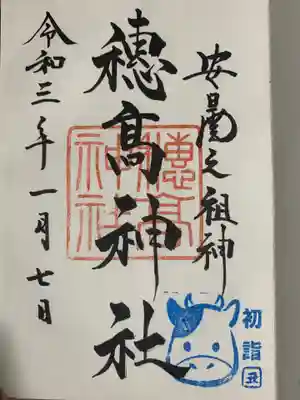 安曇之祖神
穂高神社
穂高神社
令和三年一月七日
初詣
丑